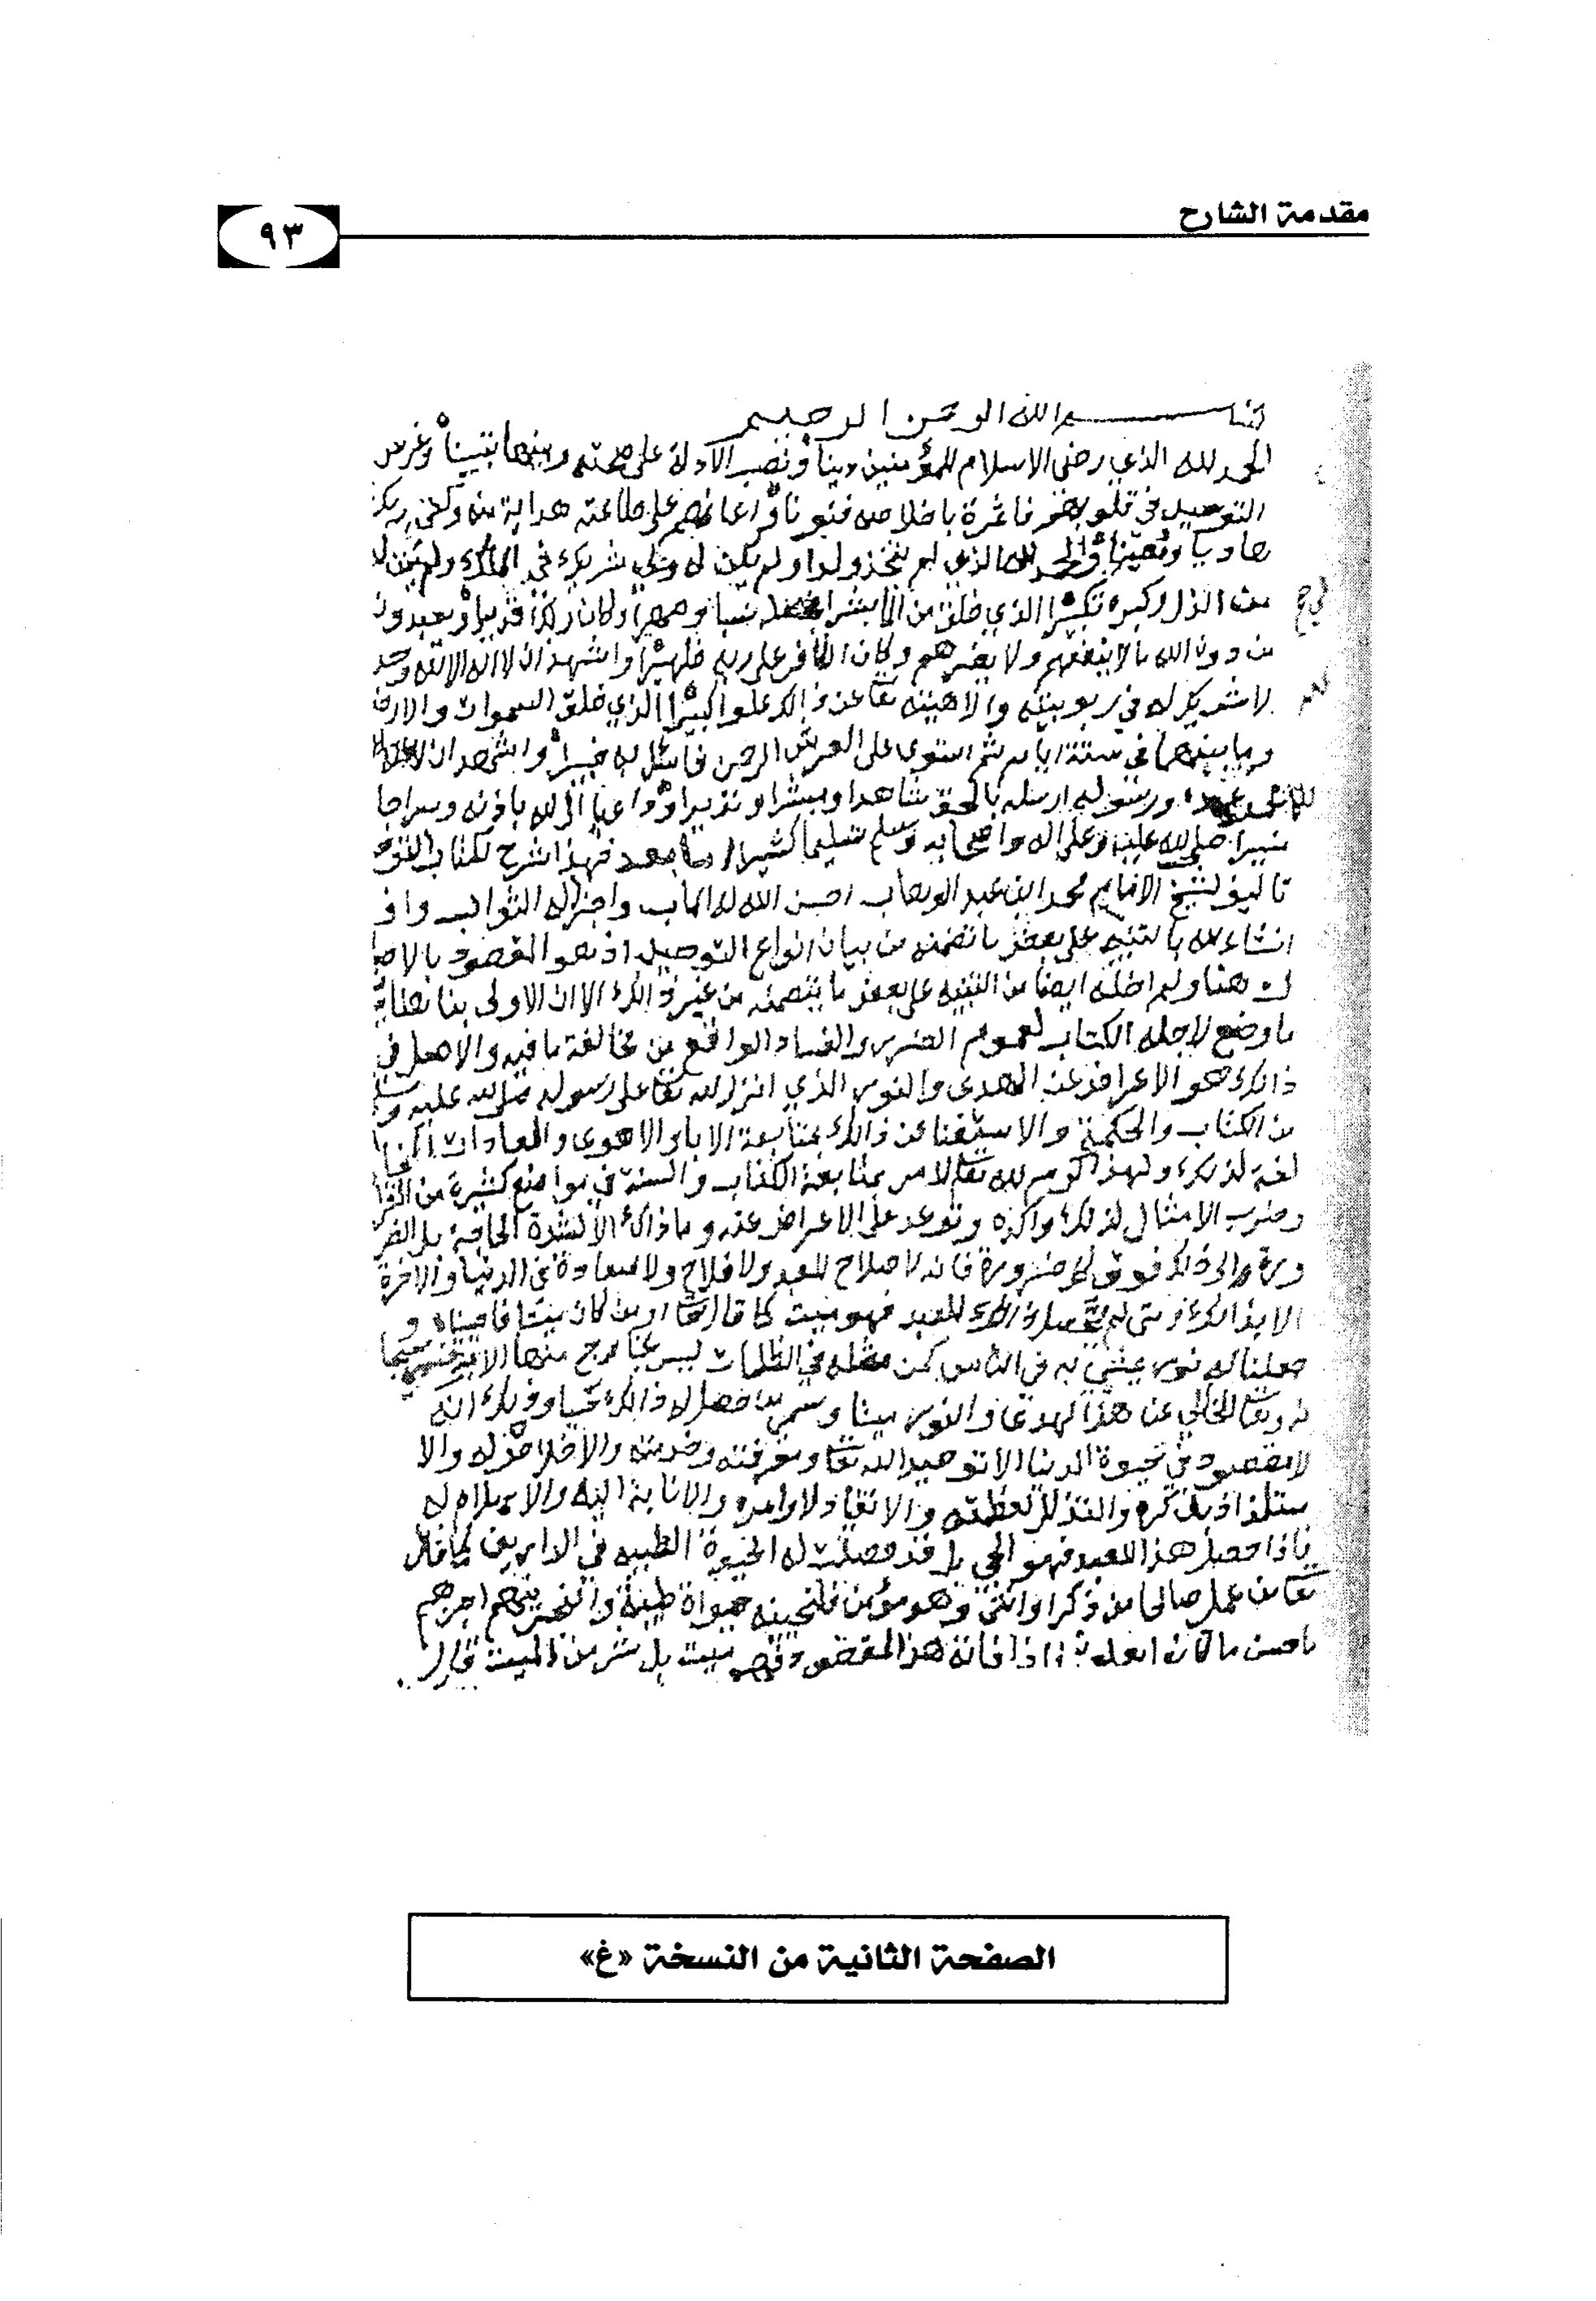 مقدمة الشارح
٩٣
بسم الله الرحمن الرحيم
الحمد لله الذي رضي الاسلام للمؤمنين دينا ونصب الادلة على صحته وبينها تبيينا وغرس
التوحيد في قلوبهم فاثمرة باخلاصه فنونا واعانهم على طاعته هداية منه وكفى بربك
هاديا ومعينا والحمد لله الذي لم يتخذ ولدا ولم يكن له شريك في الملك ولم يكن له
من الذل وكبره تكبيرا الذي خلق من الماء بشرا فجعله نسبا وصهرا وكان ربك قديرا ويعبدون
من دون الله مالا ينفعهم ولا يضرهم وكان الكافر على ربه ظهيرا واشهد ان لا اله الا الله وحده
لا شريك له في ربوبيته والاهيته تعا عن ذالك علوا كبيرا الذي خلق السموات والارض
وما بينهما في ستة ايام ثم استوى على العرش الرحمن فاسئل به خبيرا واشهد ان
محمدا عبده ورسوله ارسله بالحق شاهدا ومبشرا ونذيرا وداعيا الى الله باذنه وسراجا
منيرا صلى الله عليه وعلى اله واصحابه وسلم تسليما كثيرا اما بعد فهذا شرح لكتاب التوحيد
تاليف الشيخ الامام محمد ابن عبد الوهاب احسن الله له المآب واجزل له الثواب واف
انشاء الله بالتنبيه على بعض ما تضمنه من بيان انواع التوحيد اذ هو المقصود بالاصا
لة هنا ولم اخله ايضا من التنبيه على بعض ما يتضمنه من غير ذالك الا ان الاولى بنا هنا
ما وضع لاجله الكتاب لعموم الضرر والفساد الواقع من مخالفة ما فيه والاصل في
ذالك هو الاعراض عن الهدى والنور الذي انزل الله تعا على رسوله صلى الله عليه وسلم
من الكتاب والحكمة والاستغنا عن ذالك بمتابعة الابا والاهوى والعادات المخا
لفة لذلك ولهذا كرر الله تعا الامر بمتابعة الكتاب والسنة في مواضع كثيرة من القرآن
وضرب الامثال لذلك واكده وتوعد على الاعراض عنه وما ذاك الا لشدة الحاجة بل الضر
ورة الى ذلك فوق كل ضرورة فانه لا صلاح للعبد ولا فلاح ولا سعادة في الدنيا والاخرة
الا بذالك ومتى لم يحصل ذالك للعبد فهو ميت كما قال تعا اومن كان ميتا فاحييناه و
جعلنا له نورا يمشي به في الناس كمن مثله في الظلمات ليس بخارج منها الاية فسمى سبحا
نه وتعا الخالي عن هذا الهدى والنور ميتا وسمى من حصل له ذالك حيا وذلك انه
لا مقصود في حيوة الدنيا الا توحيد الله تعا ومعرفته وخدمته والاخلاص له والا
ستلذاذ بذكره والتذلل لعظمته والانقياد لاوامره والانابة اليه والاسلام له
فاذا حصل هذا للعبد فهو الحي بل قد حصلت له الحيوة الطيبه في الدارين كما قال
تعا من عمل صالحا من ذكر او انثى وهو مؤمن فلنحيينه حيواة طيبة ولنجزينهم اجرهم
باحسن ما كانوا يعملون اذا فاته هذا المقصود فهو ميت بل شر من الميت قال
الصفحة الثانية من النسخة «غ»